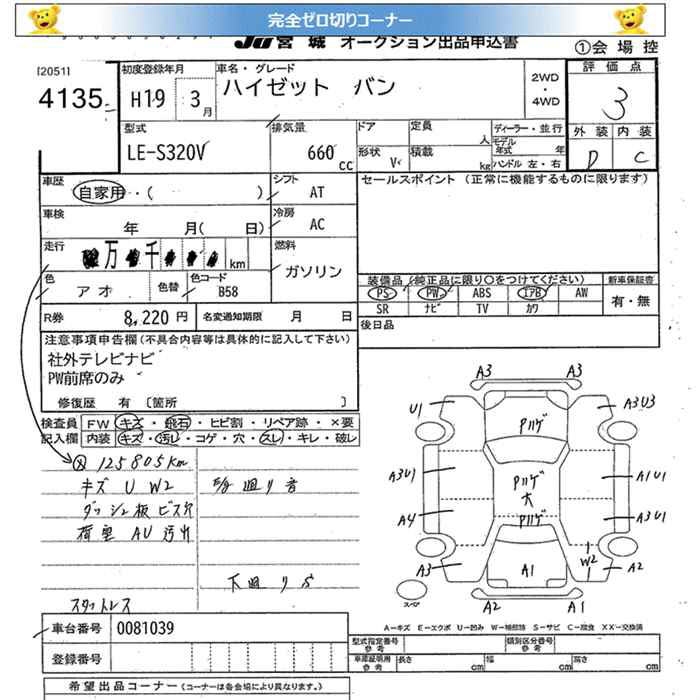 完全ゼロ切りコーナー
JU 宮城 オークション出品申込書
①会場控
[2051]
4135
初度登録年月
H19 3月
車名・グレード
ハイゼット バン
2WD
・
4WD
評価点
3
外装 内装
D C
型式
LE-S320V
排気量
660cc
ドア
形状 V
定員 人
積載 kg
ディーラー・並行
モデル年式 年
ハンドル 左・右
車歴
自家用・( )
シフト
AT
セールスポイント (正常に機能するものに限ります)
車検
年 月( 日)
冷房
AC
走行
万 千 km
燃料
ガソリン
色
アオ
色替
色コード
B58
装備品 (純正品に限り○をつけてください)
新車保証書
PS PW ABS エアB AW
SR ナビ TV カワ
有・無
R券 8,220円
名変通知期限 月 日
後日品
注意事項申告欄 (不具合内容等は具体的に記入して下さい)
社外テレビナビ
PW前席のみ
修復歴 有 〔箇所 〕
検査員記入欄
FW キズ・飛石・ヒビ割・リペア跡・×要
内装 キズ・汚レ・コゲ・穴・スレ・キレ・破レ
125805km
キズ U W2
ダッシュ板ビス穴
荷室 AU 汚レ
廻り音
下廻りS
スタットレス
A3 A3
U1 A3U3
Pハゲ
A3U1 A1U1
Pハゲ
大
Pハゲ
A4 A3U1
W2
A3 A1 A2
A2 A1
スペア
A-キズ E-エクボ U-凹み W-補修跡 S-サビ C-腐食 XX-交換済
車台番号 0081039
登録番号
型式指定番号
参考
類別区分番号
参考
車庫証明用
参考
長さ cm 幅 cm 高さ cm
希望出品コーナー (コーナーは各会場により異なります。)